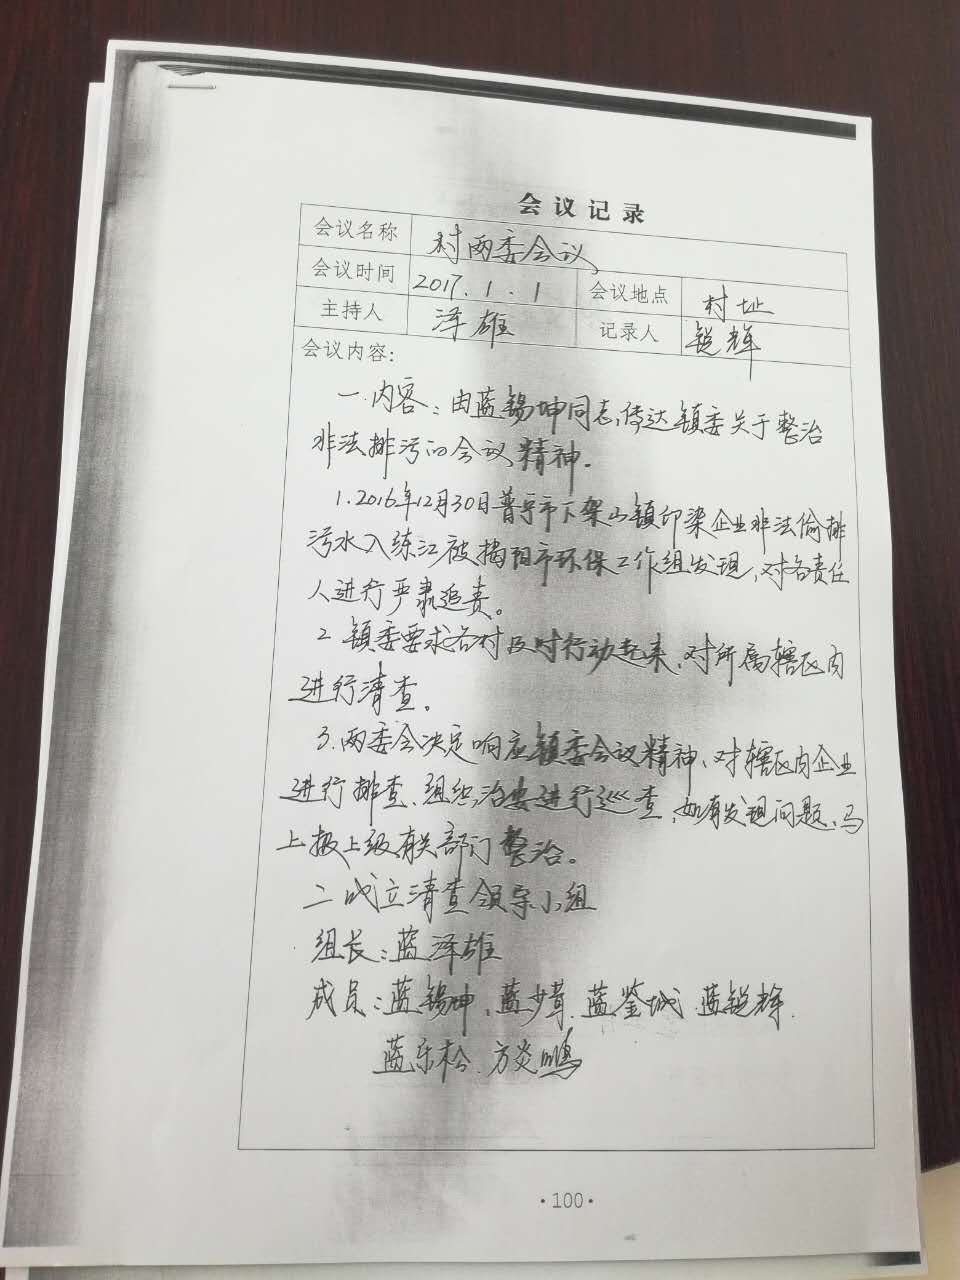 会议记录
会议名称 村两委会议
会议时间 2017.1.1 会议地点 村址
主持人 泽雄 记录人 锐辉
会议内容:
一.内容：由蓝锡坤同志,传达镇委关于整治
非法排污的会议精神.
1.2016年12月30日普宁市下架山镇印染企业非法偷排
污水入练江被揭阳市环保工作组发现,对各责任
人进行严肃追责。
2.镇委要求各村及时行动起来、对所属辖区内
进行清查。
3.两委会决定响应镇委会议精神、对辖区内企业
进行排查、组织治安进行巡查,如有发现问题、马
上报上级有关部门整治。
二.成立清查领导小组
组长：蓝泽雄
成员：蓝锡坤、蓝少茸.蓝鉴城.蓝锐辉.
蓝乐松.方炎鹏
·100·